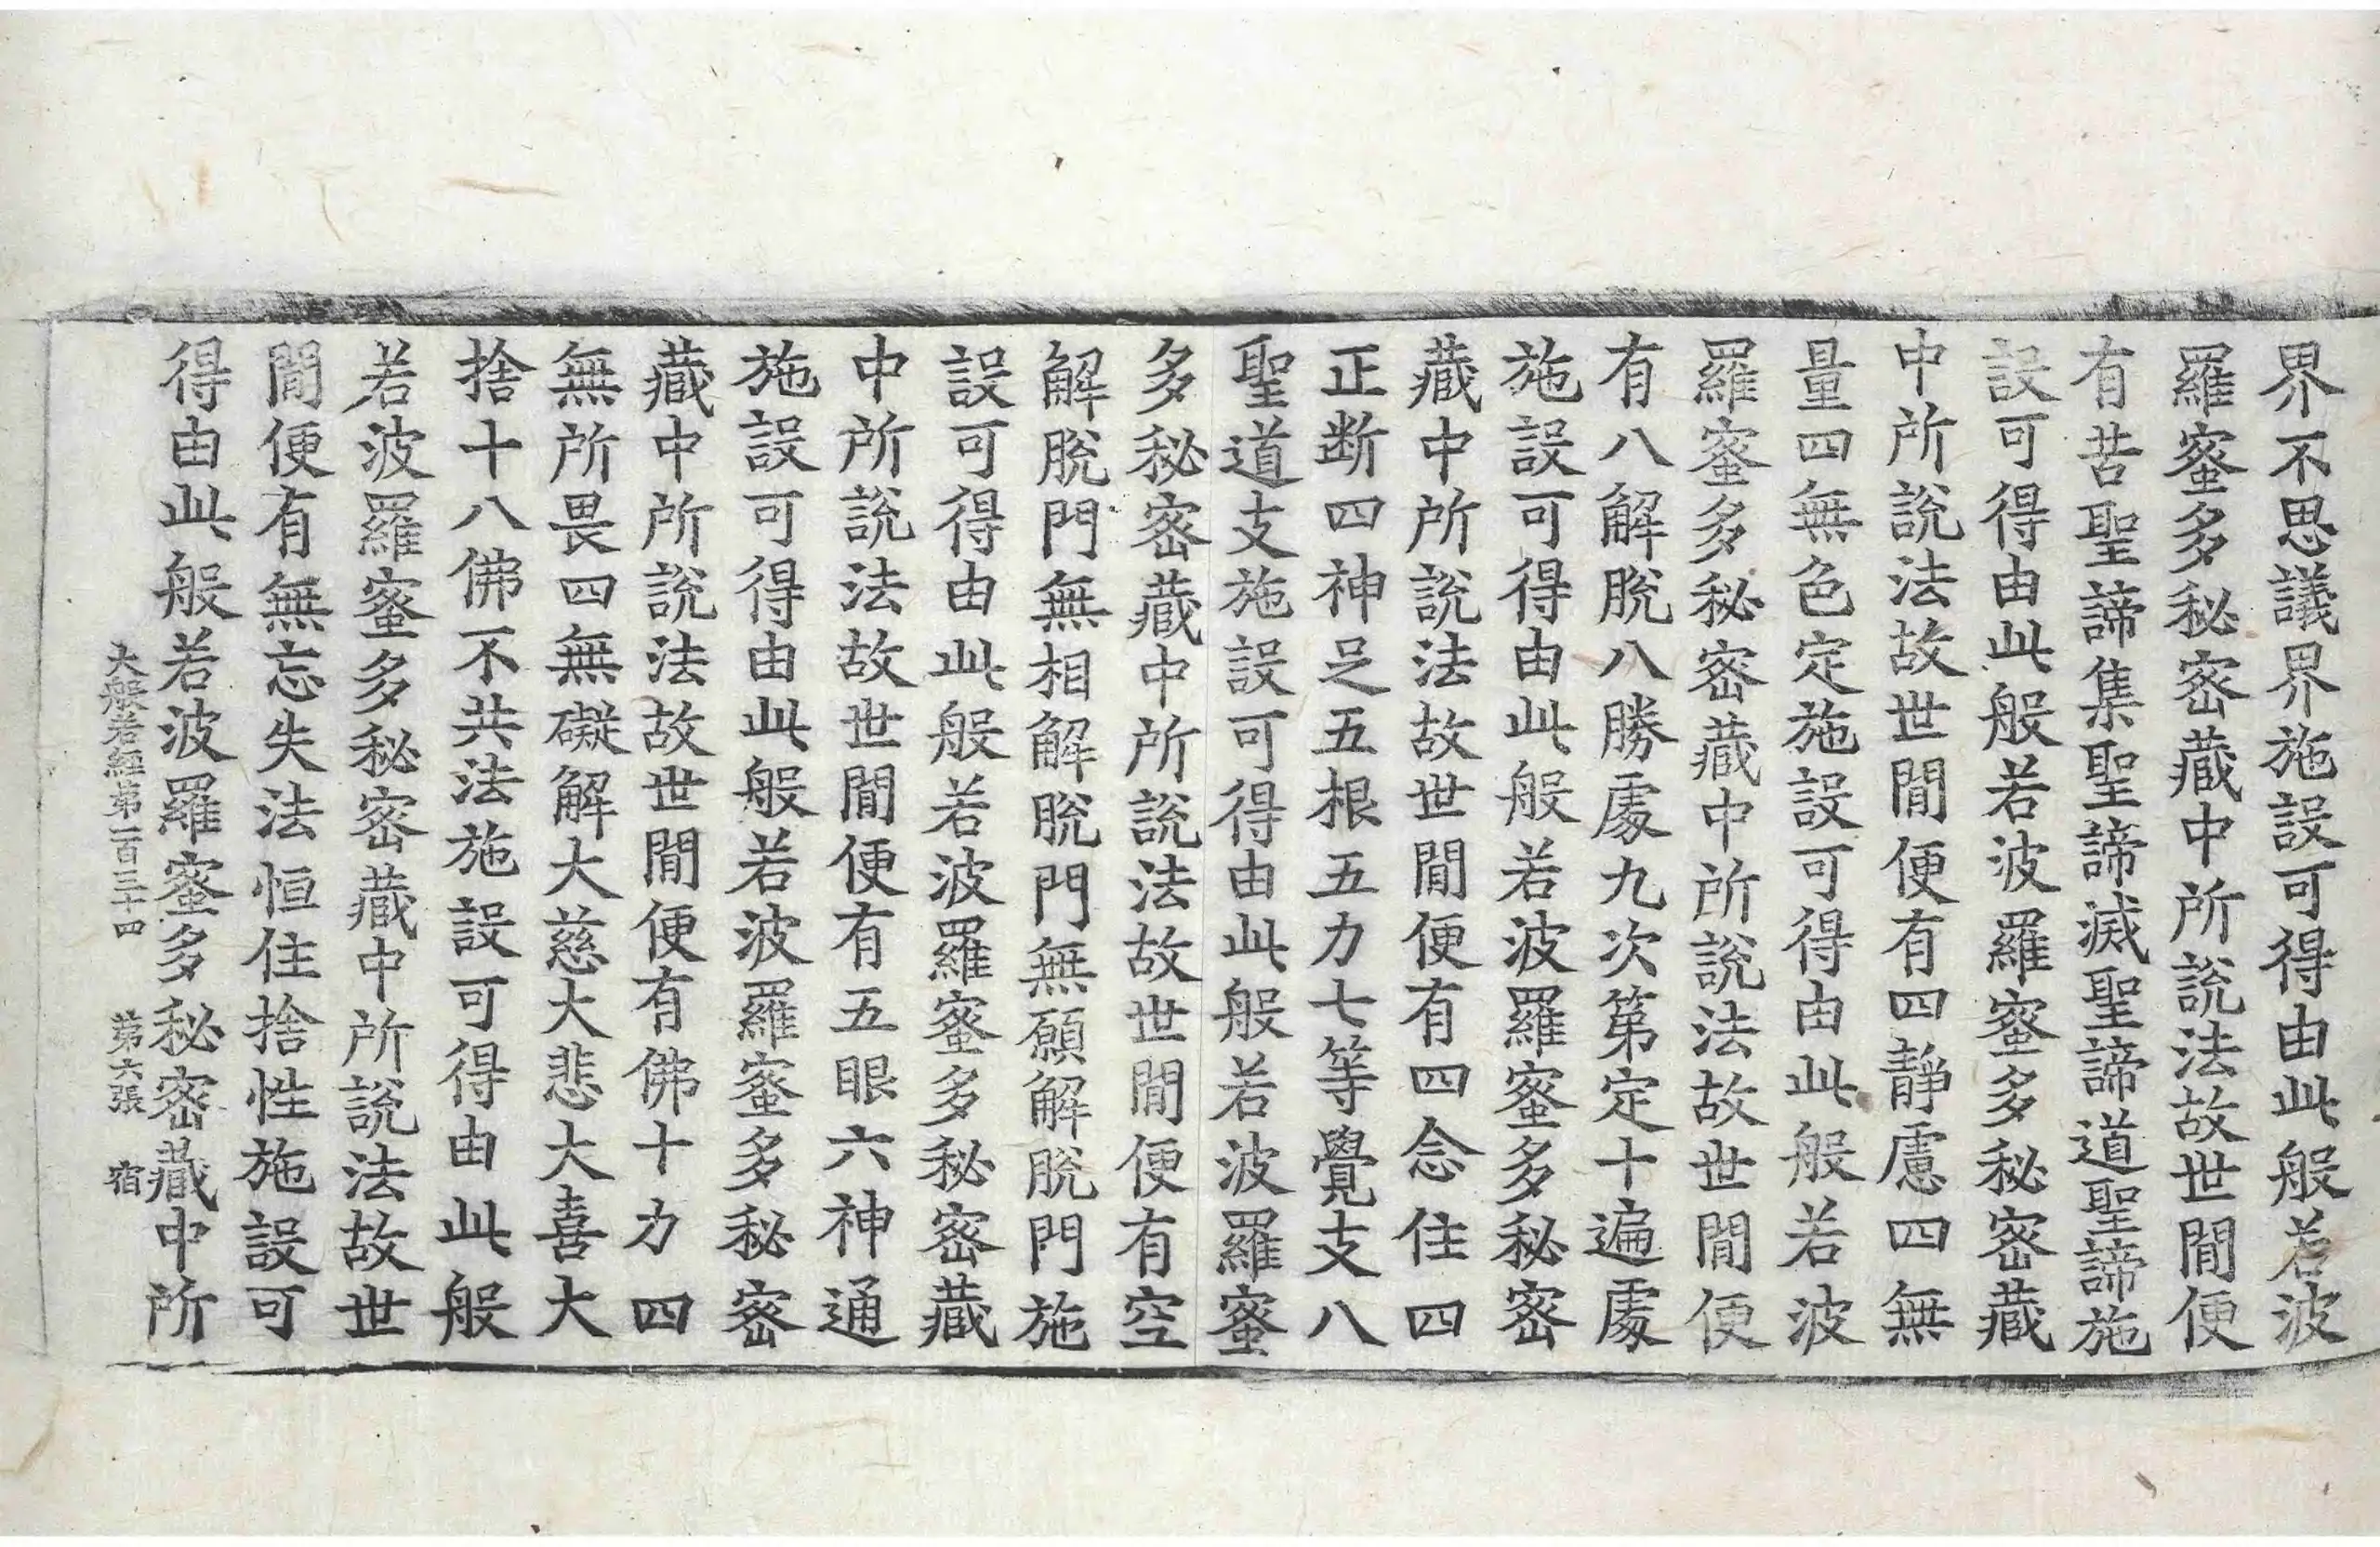 界不思議界施設可得由此般若波
羅蜜多秘密藏中所說法故世閒便
有苦聖諦集聖諦滅聖諦道聖諦施
設可得由此般若波羅蜜多秘密藏
中所說法故世閒便有四靜慮四無
量四無色定施設可得由此般若波
羅蜜多秘密藏中所說法故世閒便
有八解脫八勝處九次第定十遍處
施設可得由此般若波羅蜜多秘密
藏中所說法故世閒便有四念住四
正断四神足五根五力七等覺支八
聖道支施設可得由此般若波羅蜜
多秘密藏中所說法故世閒便有空
解脫門無相解脫門無願解脫門施
設可得由此般若波羅蜜多秘密藏
中所說法故世閒便有五眼六神通
施設可得由此般若波羅蜜多秘密
藏中所說法故世閒便有佛十力四
無所畏四無礙解大慈大悲大喜大
捨十八佛不共法施設可得由此般
若波羅蜜多秘密藏中所說法故世
閒便有無忘失法恒住捨性施設可
得由此般若波羅蜜多秘密藏中所
大般若經第一百三十四 第六張 宿